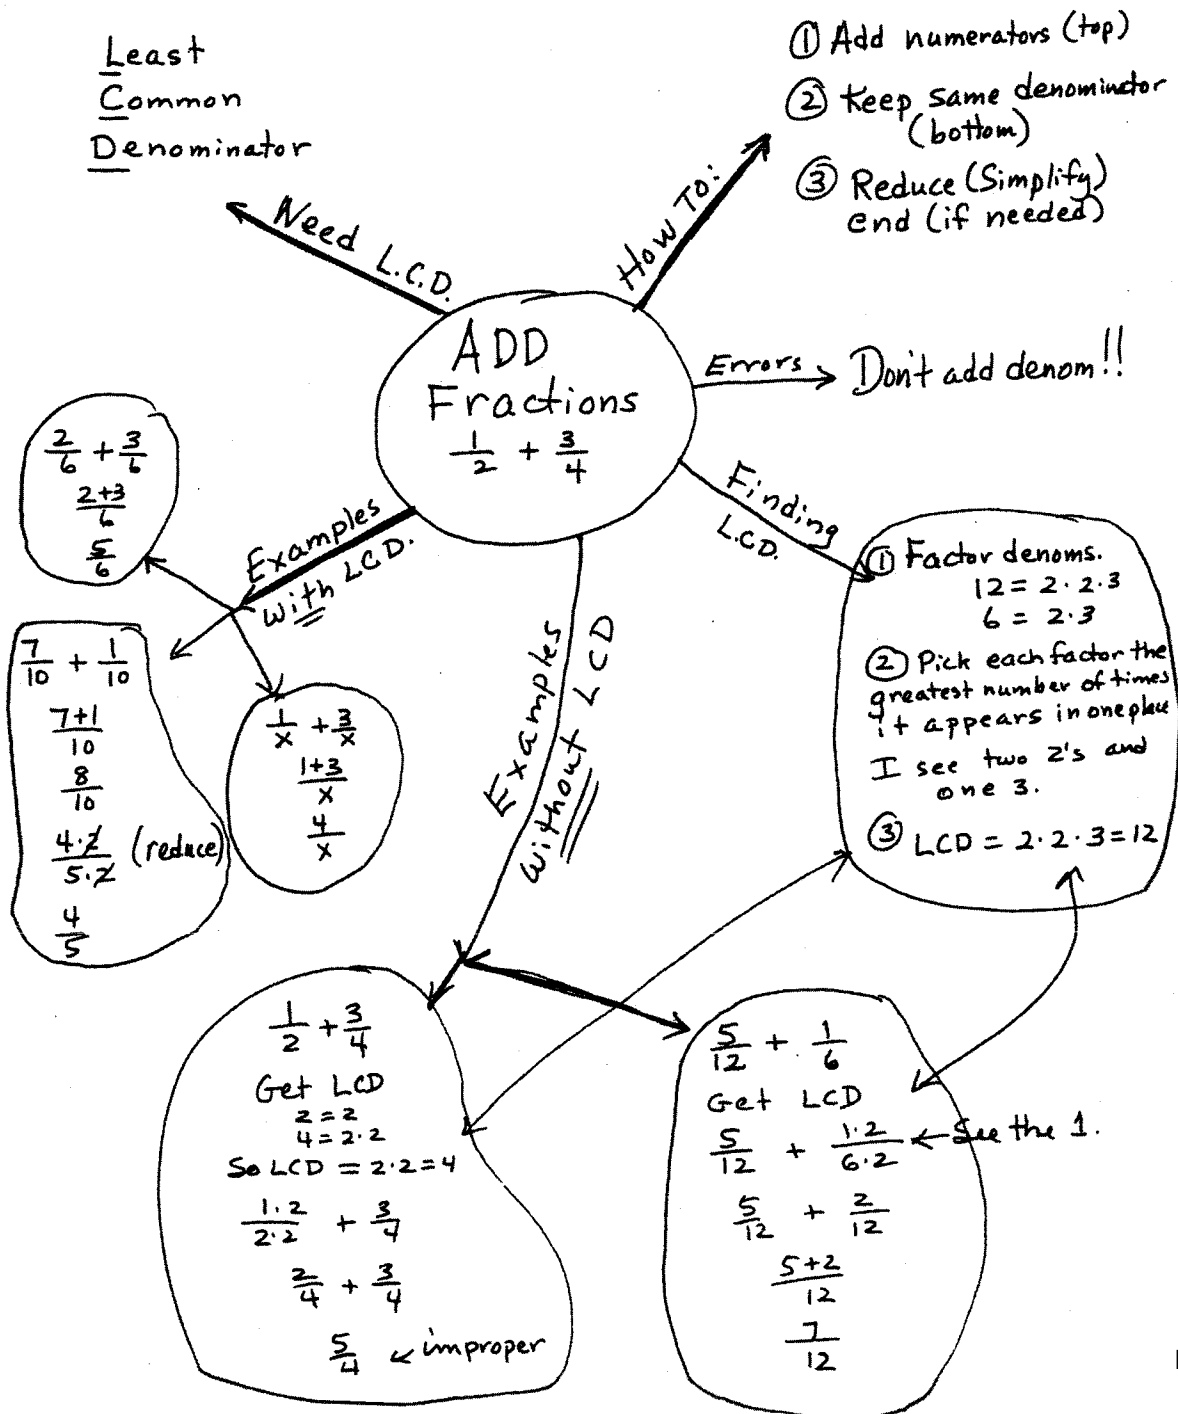 Least
Common
Denominator
① Add numerators (top)
② Keep same denominator
(bottom)
③ Reduce (Simplify)
end (if needed)
Need L.C.D.
How To:
ADD
Fractions
1/2 + 3/4
Errors
Don't add denom!!
Finding
L.C.D.
① Factor denoms.
12 = 2·2·3
6 = 2·3
② Pick each factor the
greatest number of times
it appears in one place
I see two 2's and
one 3.
③ LCD = 2·2·3=12
Examples
with LCD.
2/6 + 3/6
2+3/6
5/6
7/10 + 1/10
7+1/10
8/10
4·2/5·2 (reduce)
4/5
1/x + 3/x
1+3/x
4/x
Examples
without LCD
1/2 + 3/4
Get LCD
2 = 2
4 = 2·2
So LCD = 2·2=4
1·2/2·2 + 3/4
2/4 + 3/4
5/4 ↙ improper
5/12 + 1/6
Get LCD
5/12 + 1·2/6·2 ← See the 1.
5/12 + 2/12
5+2/12
7/12